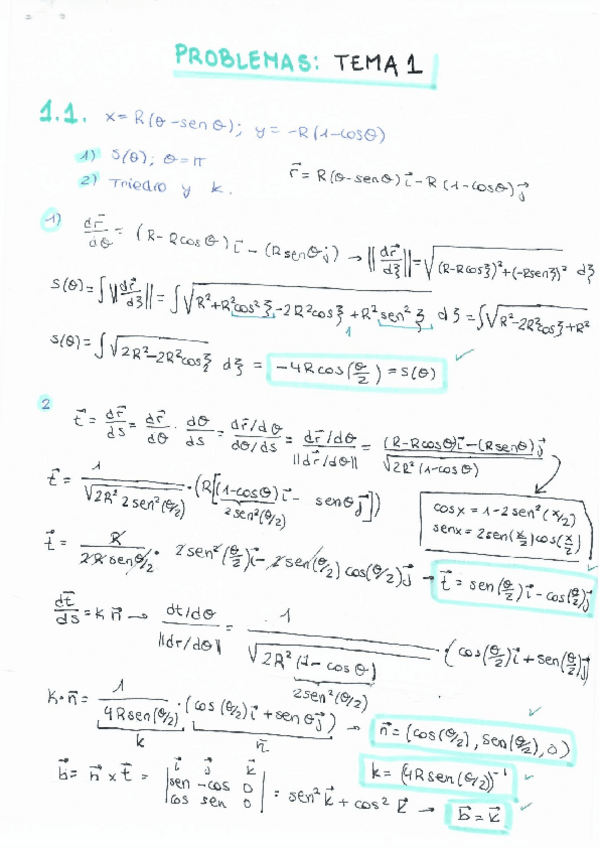 PROBLEMAS: TEMA 1
1.1. x = R(θ-senθ); y = -R(1-cosθ)
1) S(θ); θ=π
2) Triedro y k.
r⃗ = R(θ-senθ)i⃗ - R(1-cosθ)j⃗
1) dr⃗/dθ = (R-Rcosθ)i⃗ - (Rsenθj⃗) → ||dr⃗/dξ|| = √((R-Rcosξ)²+(-Rsenξ)²) dξ
S(θ) = ∫||dr⃗/dξ|| = ∫√(R²+R²cos²ξ-2R²cosξ+R²sen²ξ) dξ = ∫√(R²-2R²cosξ+R²
1
S(θ) = ∫√(2R²-2R²cosξ) dξ = -4Rcos(θ/2) = S(θ) ✓
2 t⃗ = dr⃗/ds = dr⃗/dθ · dθ/ds = (dr⃗/dθ)/(dθ/ds) = (dr⃗/dθ)/||dr⃗/dθ|| = ((R-Rcosθ)i⃗-(Rsenθ)j⃗)/√(2R²(1-cosθ))
t⃗ = 1/√(2R² 2sen²(θ/2)) · (R[(1-cosθ)i⃗ - senθj⃗])
2sen²(θ/2)
cosx = 1-2sen²(x/2)
senx = 2sen(x/2)cos(x/2)
t⃗ = R/(2Rsenθ/2) · 2sen²(θ/2)i⃗ - 2sen(θ/2)cos(θ/2)j⃗ → t⃗ = sen(θ/2)i⃗ - cos(θ/2)j⃗ ✓
dt⃗/ds = k n⃗ → (dt/dθ)/||dr/dθ|| = 1/√(2R²(1-cosθ)) · (cos(θ/2)i⃗+sen(θ/2)j⃗
2sen²(θ/2)
k·n⃗ = 1/(4Rsen(θ/2)) · (cos(θ/2)i⃗+senθj⃗) → n⃗ = (cos(θ/2), sen(θ/2), 0) ✓
k n̄
k = (4Rsen(θ/2))⁻¹ ✓
b⃗ = n⃗ x t⃗ = |i⃗ j⃗ k⃗; sen -cos 0; cos sen 0| = sen²k⃗ + cos²k⃗ → b⃗ = k⃗ ✓